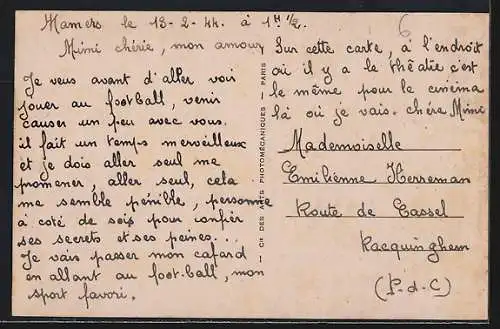 Mamers le 13-2-44. à 1H 1/2.
Mimi chérie, mon amour
Je veus avant d'aller voir
jouer au football, venir
causer un peu avec vous.
il fait un temps merveilleux
et je dois aller seul me
promener, aller seul, cela
me semble pénible, personne
à coté de sois pour confier
ses secrets et ses peines...
Je vais passer mon cafard
en allant au foot-ball, mon
sport favori.
Cie DES ARTS PHOTOMÉCANIQUES - PARIS
6
Sur cette carte, à l'endroit
où il y a le théatre c'est
le même pour le cinéma
là où je vais. chère Mimi
Mademoiselle
Emilienne Herreman
Route de Cassel
Racquinghem
(P-d-C)